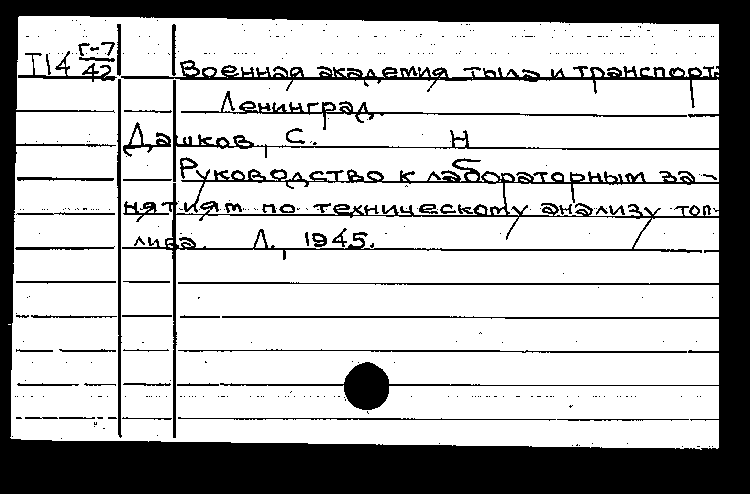 Т14 Г-7/42 Военная академия тыла и транспорта
Ленинград.
Дашков, С. Н
Руководство к лабораторным за-
нятиям по техническому анализу топ-
лива. Л., 1945.